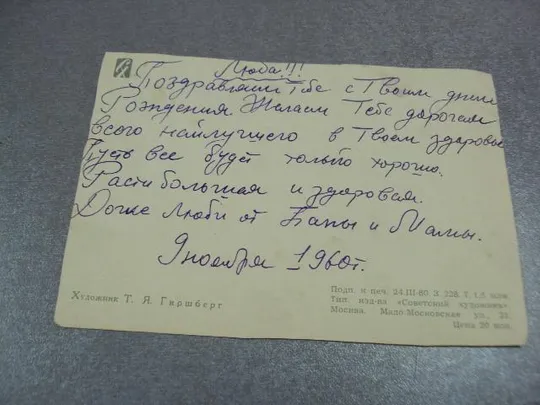 Люба!!!
Поздравляем Тебе с Твоим днем
Рождения Желаем Тебе дорогая
всего найлучшего в Твоем здоровье
Пусть все будет только хорошо.
Расти большая и здоровая.
Дочке Люби от Папы и Мамы.
9 ноября 1960 г.
Художник Т. Я. Гиршберг
Подп. к печ. 24/III-60. З. 228. Т. 1,5 млн.
Тип. изд-ва «Советский художник»
Москва, Мало-Московская ул., 21.
Цена 20 коп.